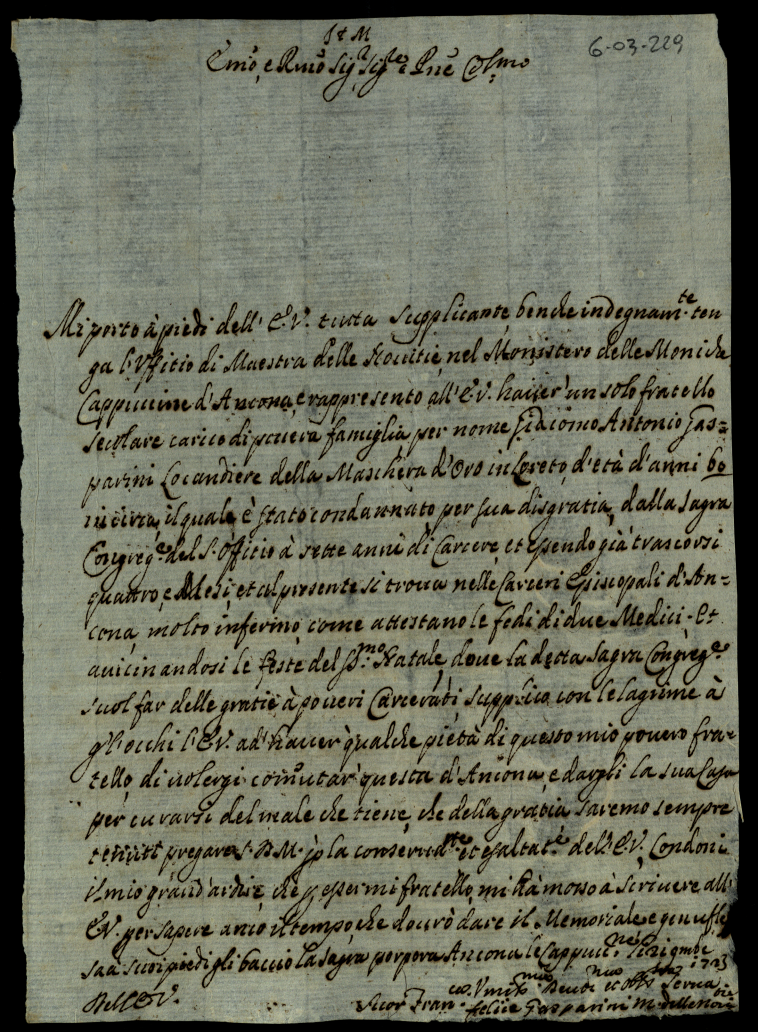 6-03-229
J & M
Emo, e Rmo Sig.r Sig.re e Pne Colmo
Mi porto à piedi dell' E.V. tutta supplicante benche indegnam.te ten
ga l'Uffitio di Maestra delle Nouitie nel Monistero delle Moniche
Cappuccine d'Ancona, e rappresento all' E.V. hauer' un solo fratello
secolare carico di pouera famiglia per nome Giacomo Antonio Gas=
parini Locandiere della Maschera d'Oro in Loreto, d'età d'anni 60
in circa, il quale è stato condannato per sua disgratia, dalla Sagra
Congreg.e del S. Offitio à sette anni di Carcere, et essendo già trascorsi
quattro, e Mesi, et al presente si troua nelle Carceri Episcopali d'An=
cona, molto infermo, come attestano le fedi di due Medici. Et
auicinandosi le feste del SS.mo Natale, doue la detta Sagra Congreg.e
suol far delle gratie à poueri Carcerati supplico con le lagrime à
gl'occhi l'E.V. ad' hauer' qualche pietà di questo mio pouero fra=
tello, di uolergi comutar' questa d'Ancona, e dargli la sua Casa
per curarsi del male che tiene, che della gratia saremo sempre
tenuti pregare S. D. M. p la conseruat.ne et esaltat.e dell' E.V. Condoni
il mio grand'ardire, che p esser mi fratello, mi hà mosso à scriuere all'
E.V. per sapere anco il tempo che dourò dare il Memoriale, e genufles
sa a suoi piedi gli baccio la Sagra porpora Ancona le Cappuc.ne li 9mbe
1723
Dell' E.V.
Vmil.ma Deuot.ma et obb.ma Serua
Suor Fran.ca Felice Gasparini M. delle Nouitie